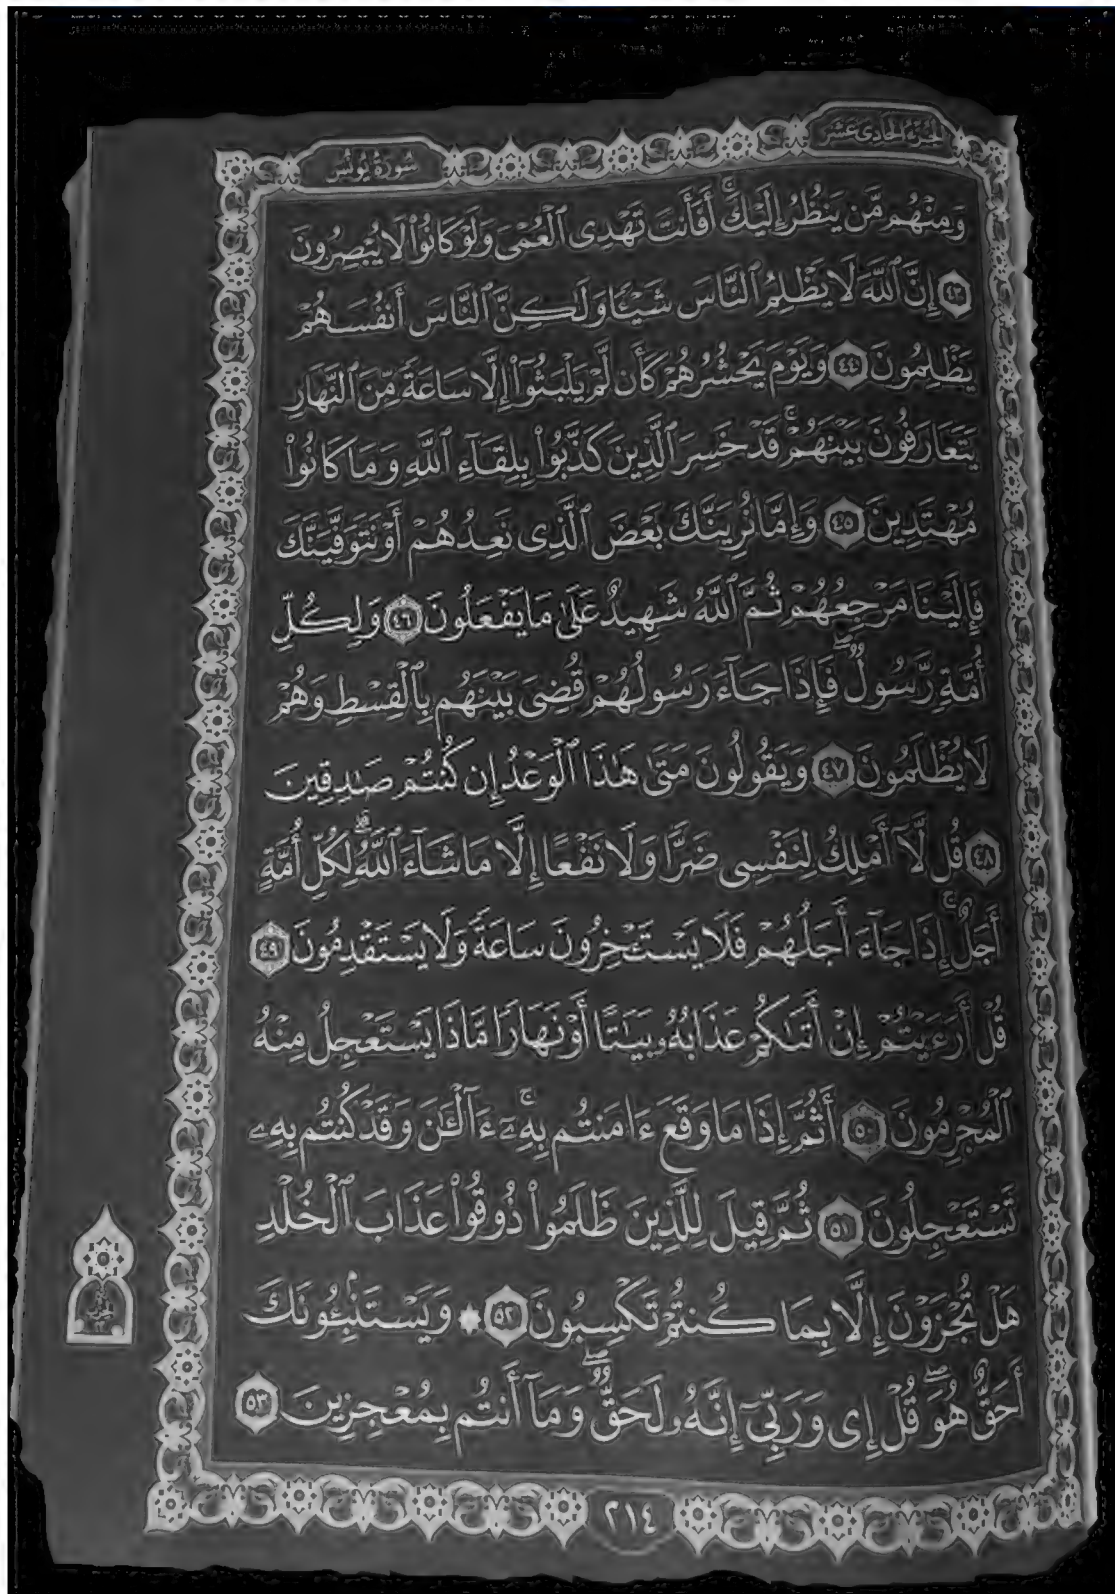 الجزء الحادي عشر
سورة يونس
وَمِنْهُم مَّن يَنظُرُ إِلَيْكَ ۚ أَفَأَنتَ تَهْدِى ٱلْعُمْىَ وَلَوْ كَانُوا۟ لَا يُبْصِرُونَ
٤٣ إِنَّ ٱللَّهَ لَا يَظْلِمُ ٱلنَّاسَ شَيْـًٔا وَلَـٰكِنَّ ٱلنَّاسَ أَنفُسَهُمْ
يَظْلِمُونَ ٤٤ وَيَوْمَ يَحْشُرُهُمْ كَأَن لَّمْ يَلْبَثُوٓا۟ إِلَّا سَاعَةً مِّنَ ٱلنَّهَارِ
يَتَعَارَفُونَ بَيْنَهُمْ ۚ قَدْ خَسِرَ ٱلَّذِينَ كَذَّبُوا۟ بِلِقَآءِ ٱللَّهِ وَمَا كَانُوا۟
مُهْتَدِينَ ٤٥ وَإِمَّا نُرِيَنَّكَ بَعْضَ ٱلَّذِى نَعِدُهُمْ أَوْ نَتَوَفَّيَنَّكَ
فَإِلَيْنَا مَرْجِعُهُمْ ثُمَّ ٱللَّهُ شَهِيدٌ عَلَىٰ مَا يَفْعَلُونَ ٤٦ وَلِكُلِّ
أُمَّةٍ رَّسُولٌ ۖ فَإِذَا جَآءَ رَسُولُهُمْ قُضِىَ بَيْنَهُم بِٱلْقِسْطِ وَهُمْ
لَا يُظْلَمُونَ ٤٧ وَيَقُولُونَ مَتَىٰ هَـٰذَا ٱلْوَعْدُ إِن كُنتُمْ صَـٰدِقِينَ
٤٨ قُل لَّآ أَمْلِكُ لِنَفْسِى ضَرًّا وَلَا نَفْعًا إِلَّا مَا شَآءَ ٱللَّهُ ۗ لِكُلِّ أُمَّةٍ
أَجَلٌ ۚ إِذَا جَآءَ أَجَلُهُمْ فَلَا يَسْتَـْٔخِرُونَ سَاعَةً ۖ وَلَا يَسْتَقْدِمُونَ ٤٩
قُلْ أَرَءَيْتُمْ إِنْ أَتَىٰكُمْ عَذَابُهُۥ بَيَـٰتًا أَوْ نَهَارًا مَّاذَا يَسْتَعْجِلُ مِنْهُ
ٱلْمُجْرِمُونَ ٥٠ أَثُمَّ إِذَا مَا وَقَعَ ءَامَنتُم بِهِۦٓ ۚ ءَآلْـَٔـٰنَ وَقَدْ كُنتُم بِهِۦ
تَسْتَعْجِلُونَ ٥١ ثُمَّ قِيلَ لِلَّذِينَ ظَلَمُوا۟ ذُوقُوا۟ عَذَابَ ٱلْخُلْدِ
هَلْ تُجْزَوْنَ إِلَّا بِمَا كُنتُمْ تَكْسِبُونَ ٥٢ ۞ وَيَسْتَنۢبِـُٔونَكَ
أَحَقٌّ هُوَ ۖ قُلْ إِى وَرَبِّىٓ إِنَّهُۥ لَحَقٌّ ۖ وَمَآ أَنتُم بِمُعْجِزِينَ ٥٣
٢١٤